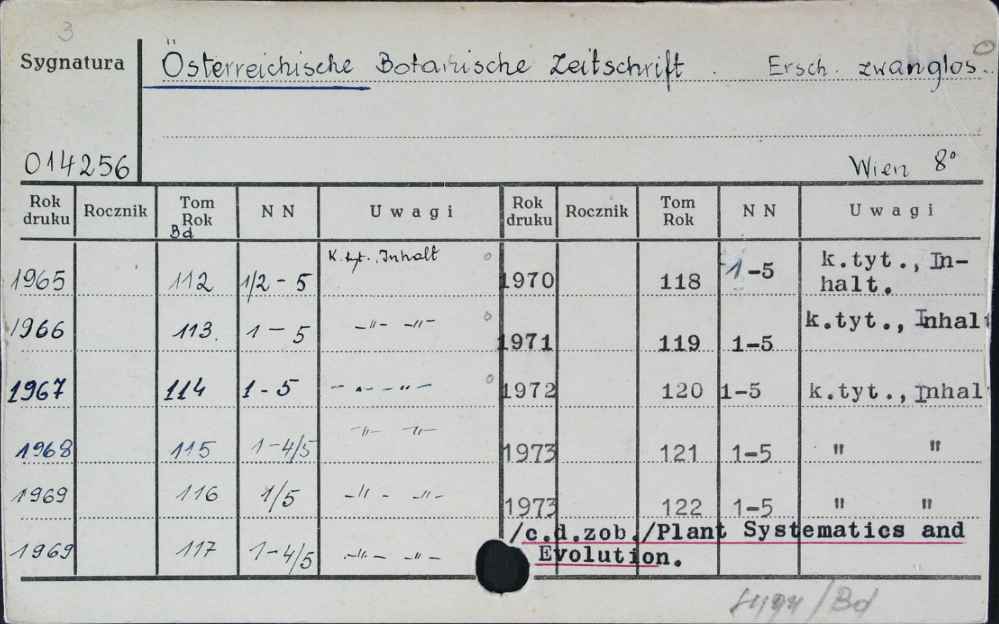 3
Sygnatura Österreichische Botanische Zeitschrift. Ersch. zwanglos.
014256 Wien 8°
Rok druku Rocznik Tom Rok Bd NN Uwagi Rok druku Rocznik Tom Rok NN Uwagi
1965 112 1/2-5 K.tyt., Inhalt 1970 118 1-5 k.tyt., In-halt.
1966 113. 1-5 -"- -"- 1971 119 1-5 k.tyt., Inhalt
1967 114 1-5 -"- -"- 1972 120 1-5 k.tyt., Inhal
1968 115 1-4/5 -"- -"- 1973 121 1-5 " "
1969 116 1/5 -"- -"- 1973 122 1-5 " "
1969 117 1-4/5 -"- -"- /c.d.zob./Plant Systematics and
Evolution.
/Bd